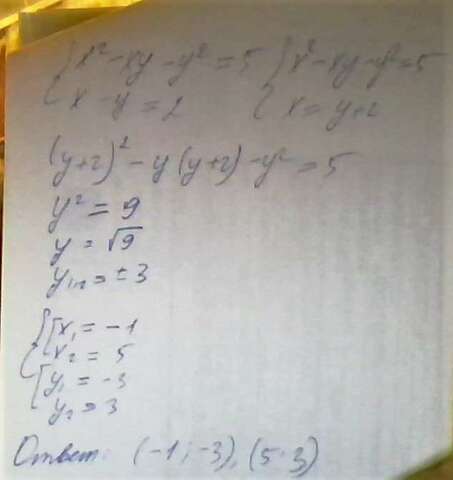 { x² - xy - y² = 5 { x² - xy - y² = 5
{ x - y = 2 { x = y + 2
(y+2)² - y(y+2) - y² = 5
y² = 9
y = √9
y₁,₂ = ± 3
{ [ x₁ = -1
x₂ = 5
[ y₁ = -3
y₂ = 3
Ответ: (-1; -3), (5; 3)